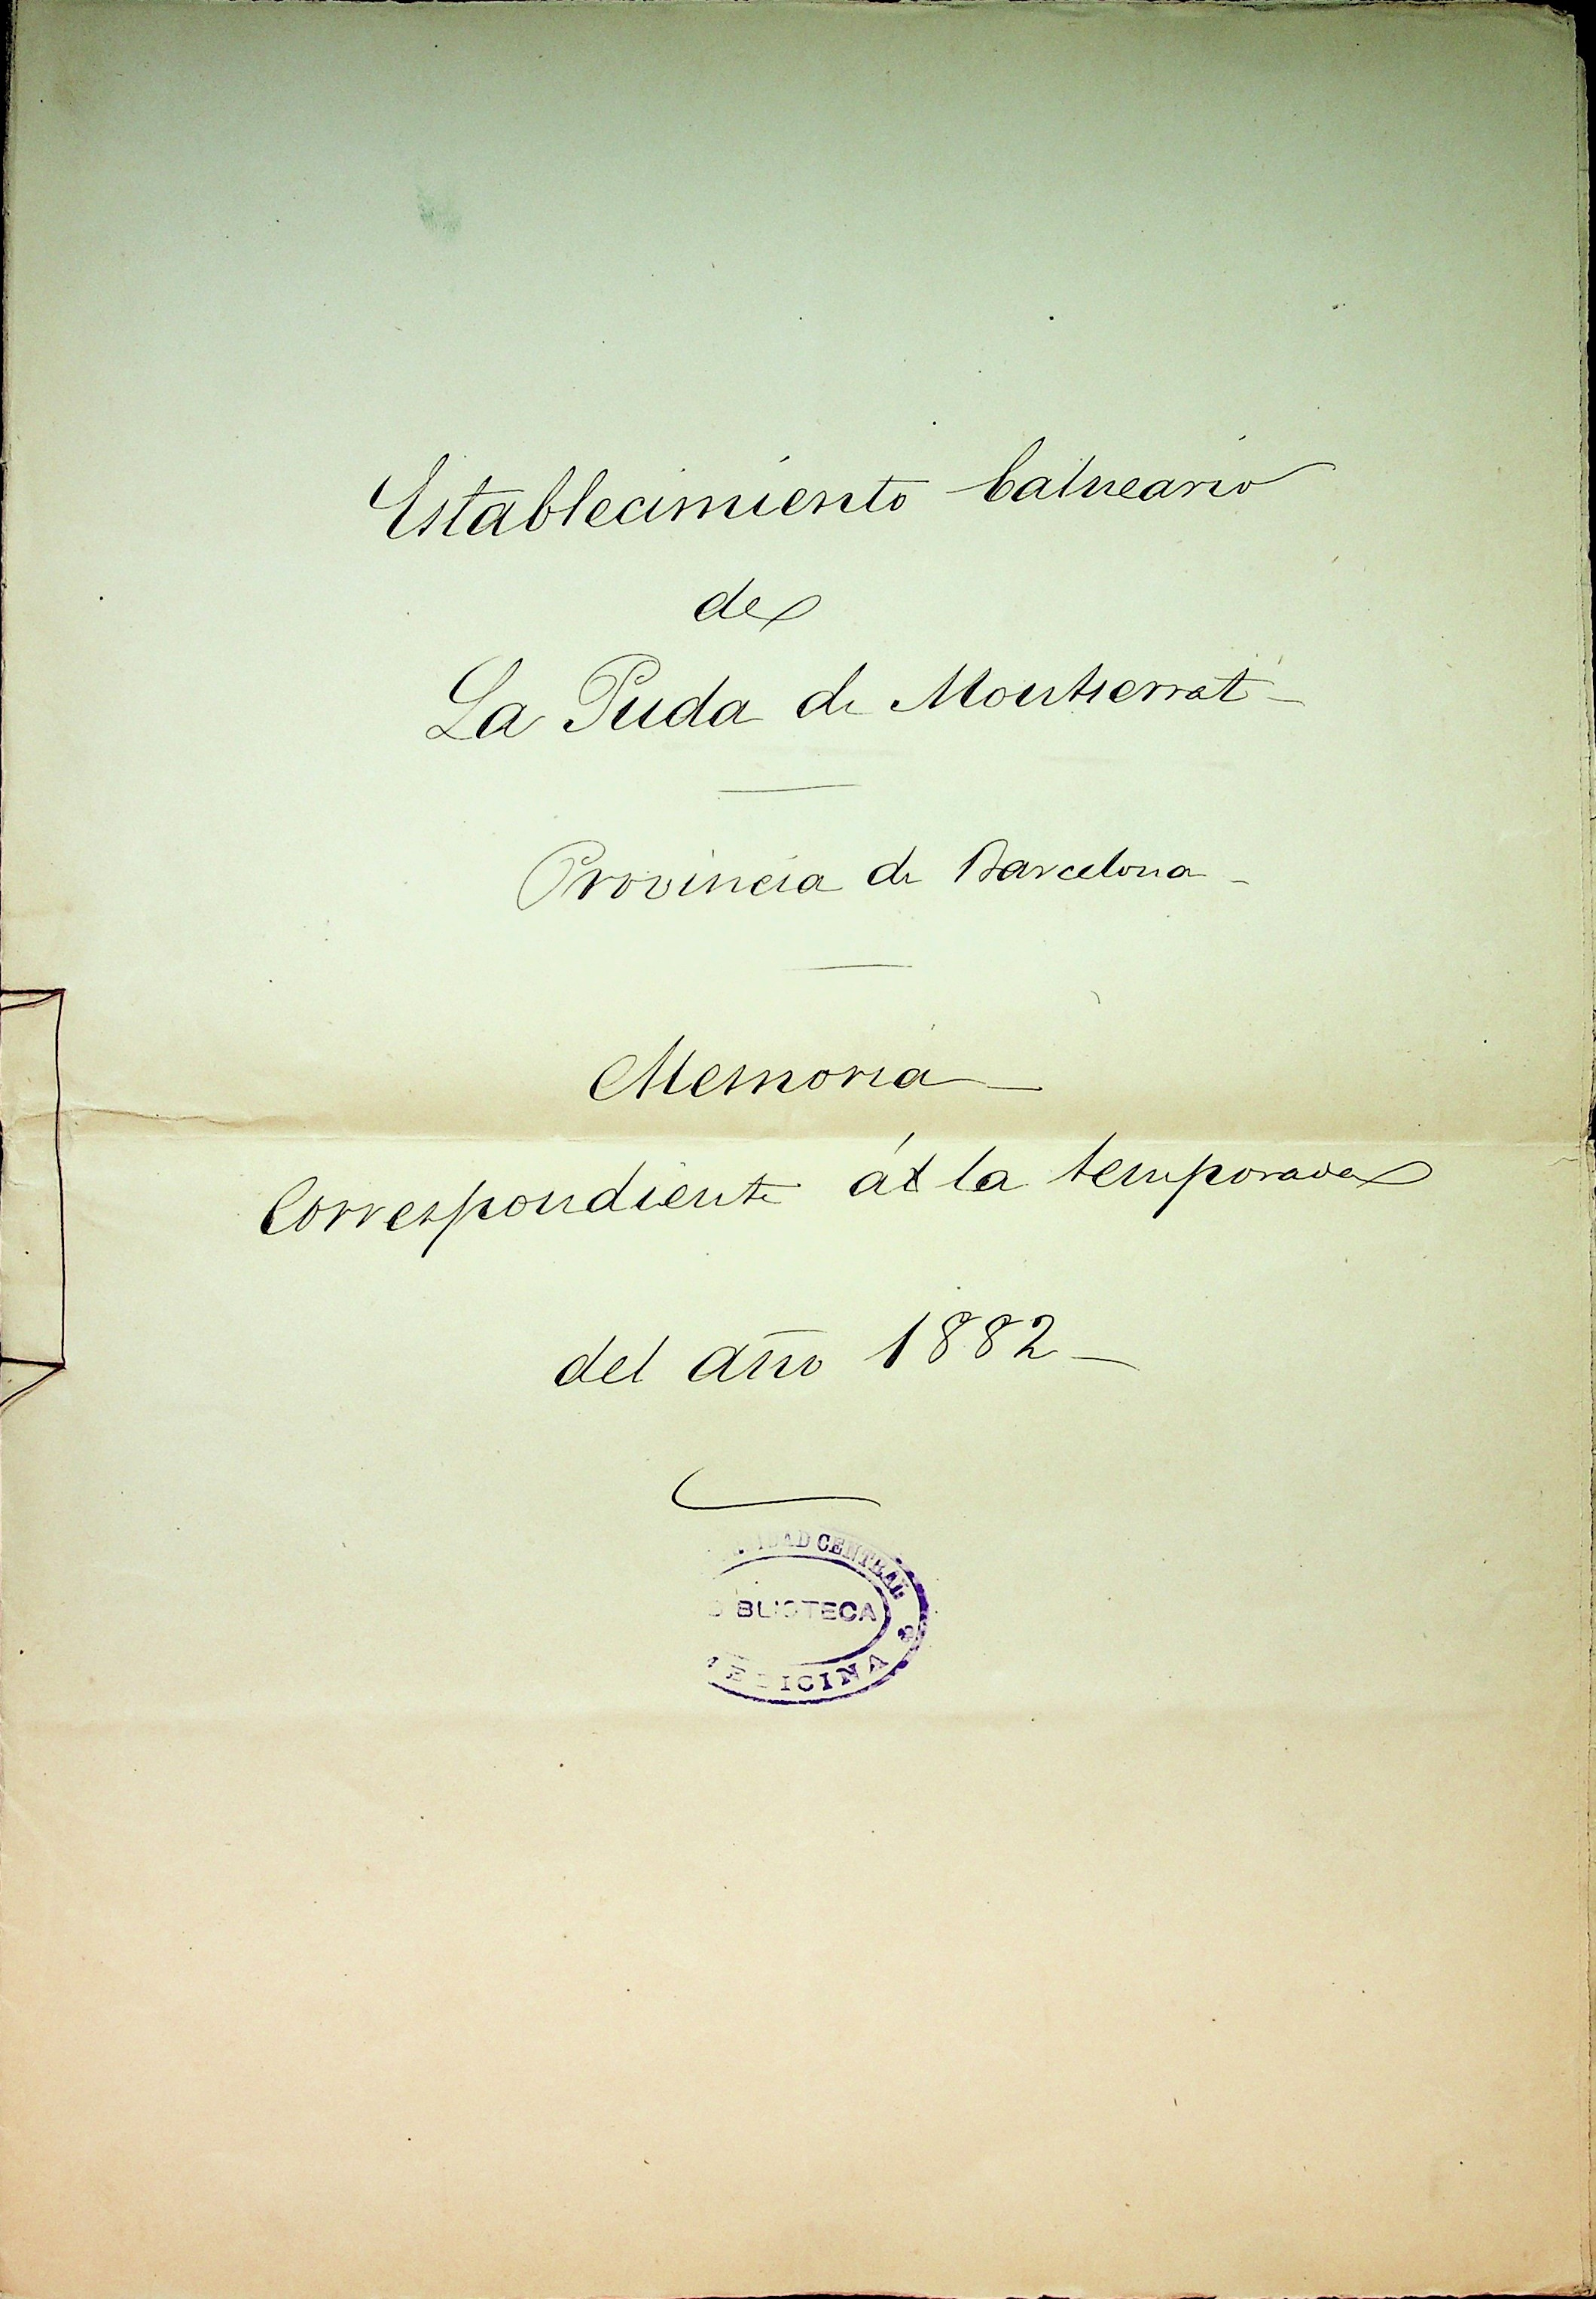 Establecimiento balneario
de
La Puda de Montserrat
Provincia de Barcelona
Memoria
Correspondiente á la temporada
del año 1882
CENTRAL
BIBLIOTECA
MEDICINA